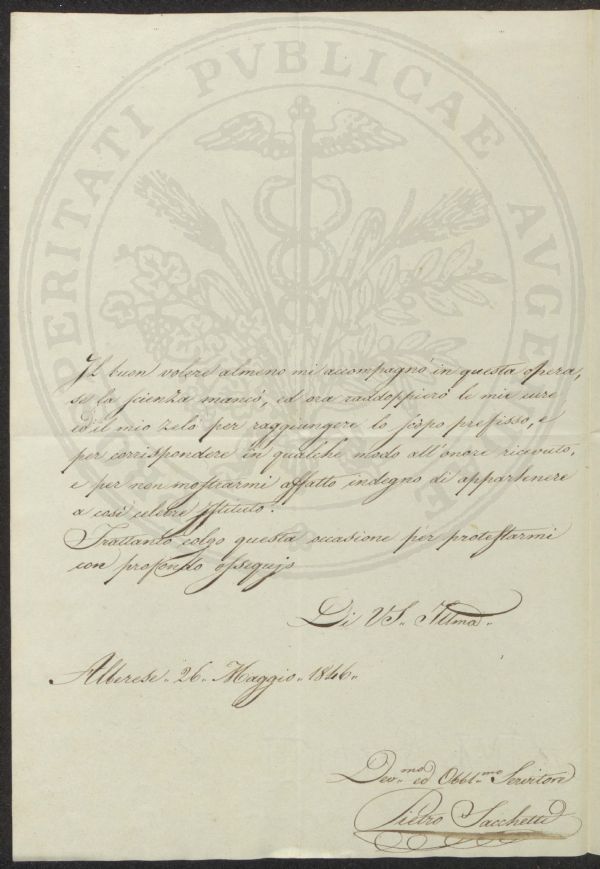 PROSPERITATI PVBLICAE AVGENDAE
Il buon volere almeno mi accompagnò in questa opera,
se la scienza mancò, ed ora raddoppierò le mie cure
ed il mio zelo per raggiungere lo scopo prefisso, e
per corrispondere in qualche modo all'onore ricevuto,
e per non mostrarmi affatto indegno di appartenere
a così celebre Istituto.
Trattanto colgo questa occasione per protestarmi
con profondo ossequio
Di VS. Illma.
Alberese. 26. Maggio. 1846.
Dev.mo ed Obbl.mo Servitore
Pietro Sacchetti